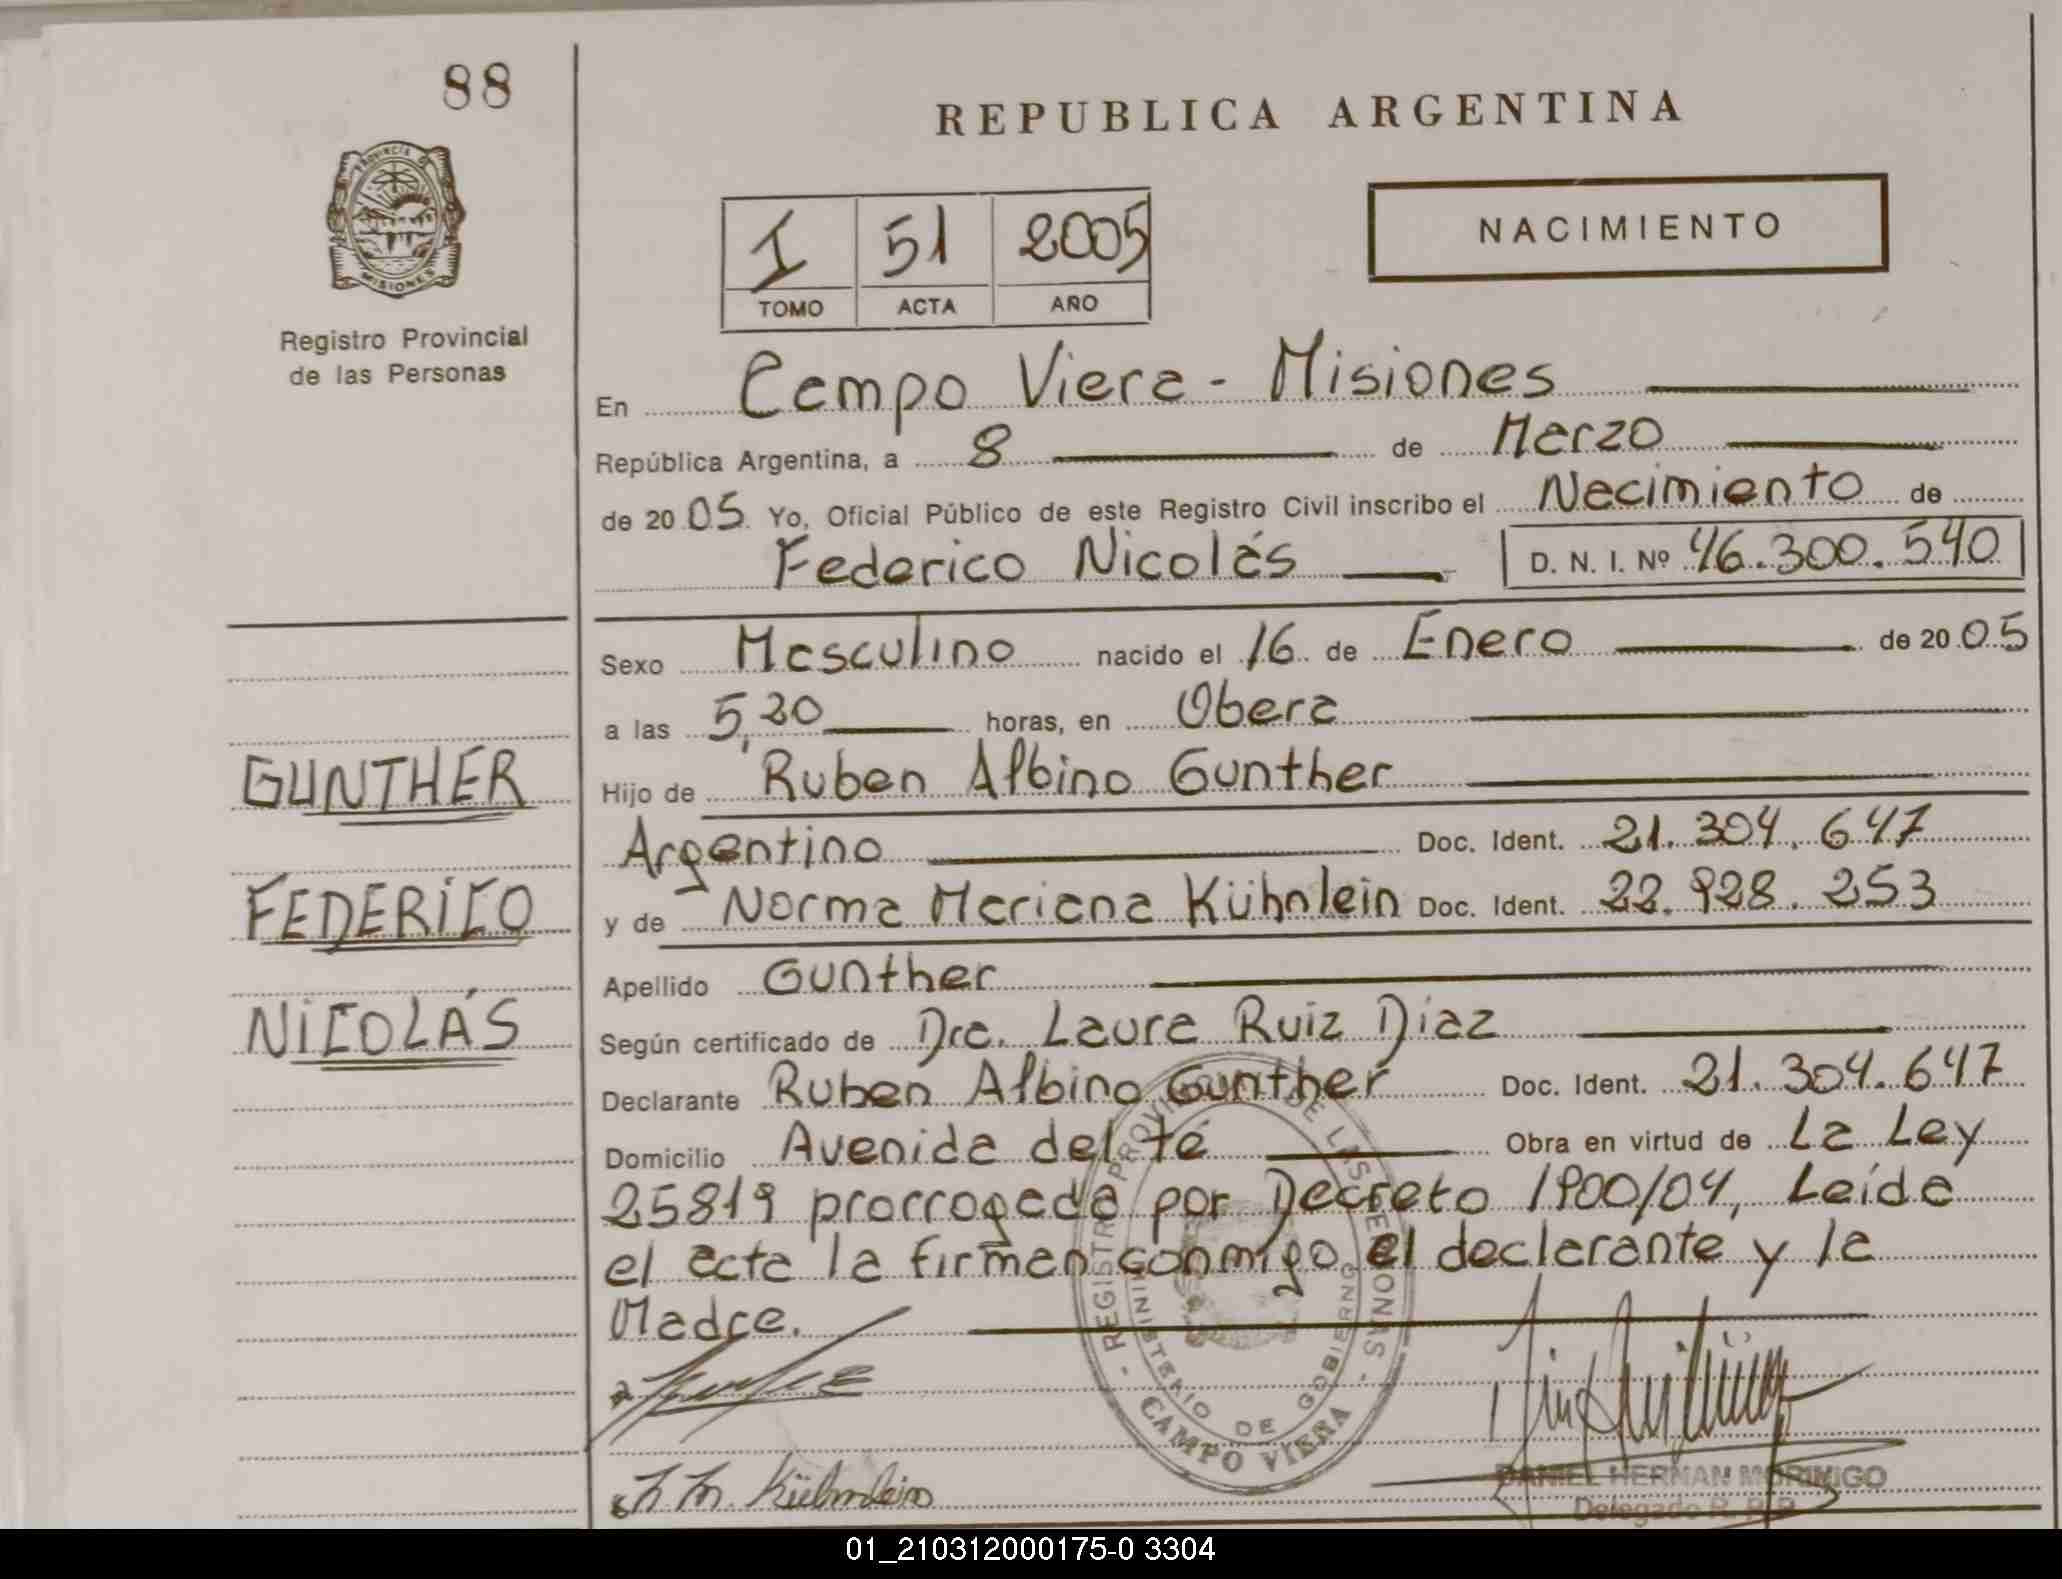 88
REPUBLICA ARGENTINA
PROVINCIA D
MISIONES
Registro Provincial
de las Personas
I 51 2005
TOMO ACTA AÑO
NACIMIENTO
En Campo Viera - Misiones
República Argentina, a 8 de Marzo
de 2005 Yo, Oficial Público de este Registro Civil inscribo el Nacimiento de
Federico Nicolás D. N. I. Nº 46.300.540
Sexo Masculino nacido el 16 de Enero de 2005
a las 5,20 horas, en Obera
Hijo de Ruben Albino Gunther
Argentino Doc. Ident. 21.304.647
y de Norma Mariana Kühnlein Doc. Ident. 22.928.253
Apellido Gunther
Según certificado de Dra. Laura Ruiz Diaz
Declarante Ruben Albino Gunther Doc. Ident. 21.304.647
Domicilio Avenida del té Obra en virtud de La Ley
25819 prorrogada por Decreto 1900/04, Leída
el acta la firman conmigo el declarante y la
Madre.
GUNTHER
FEDERICO
NICOLÁS
- REGISTRO PROVINCIAL DE LAS PERSONAS -
MINISTERIO DE GOBIERNO
CAMPO VIERA
N. M. Kühnlein
DANIEL HERNAN MORINIGO
Delegado R. P. P.
01_210312000175-0 3304